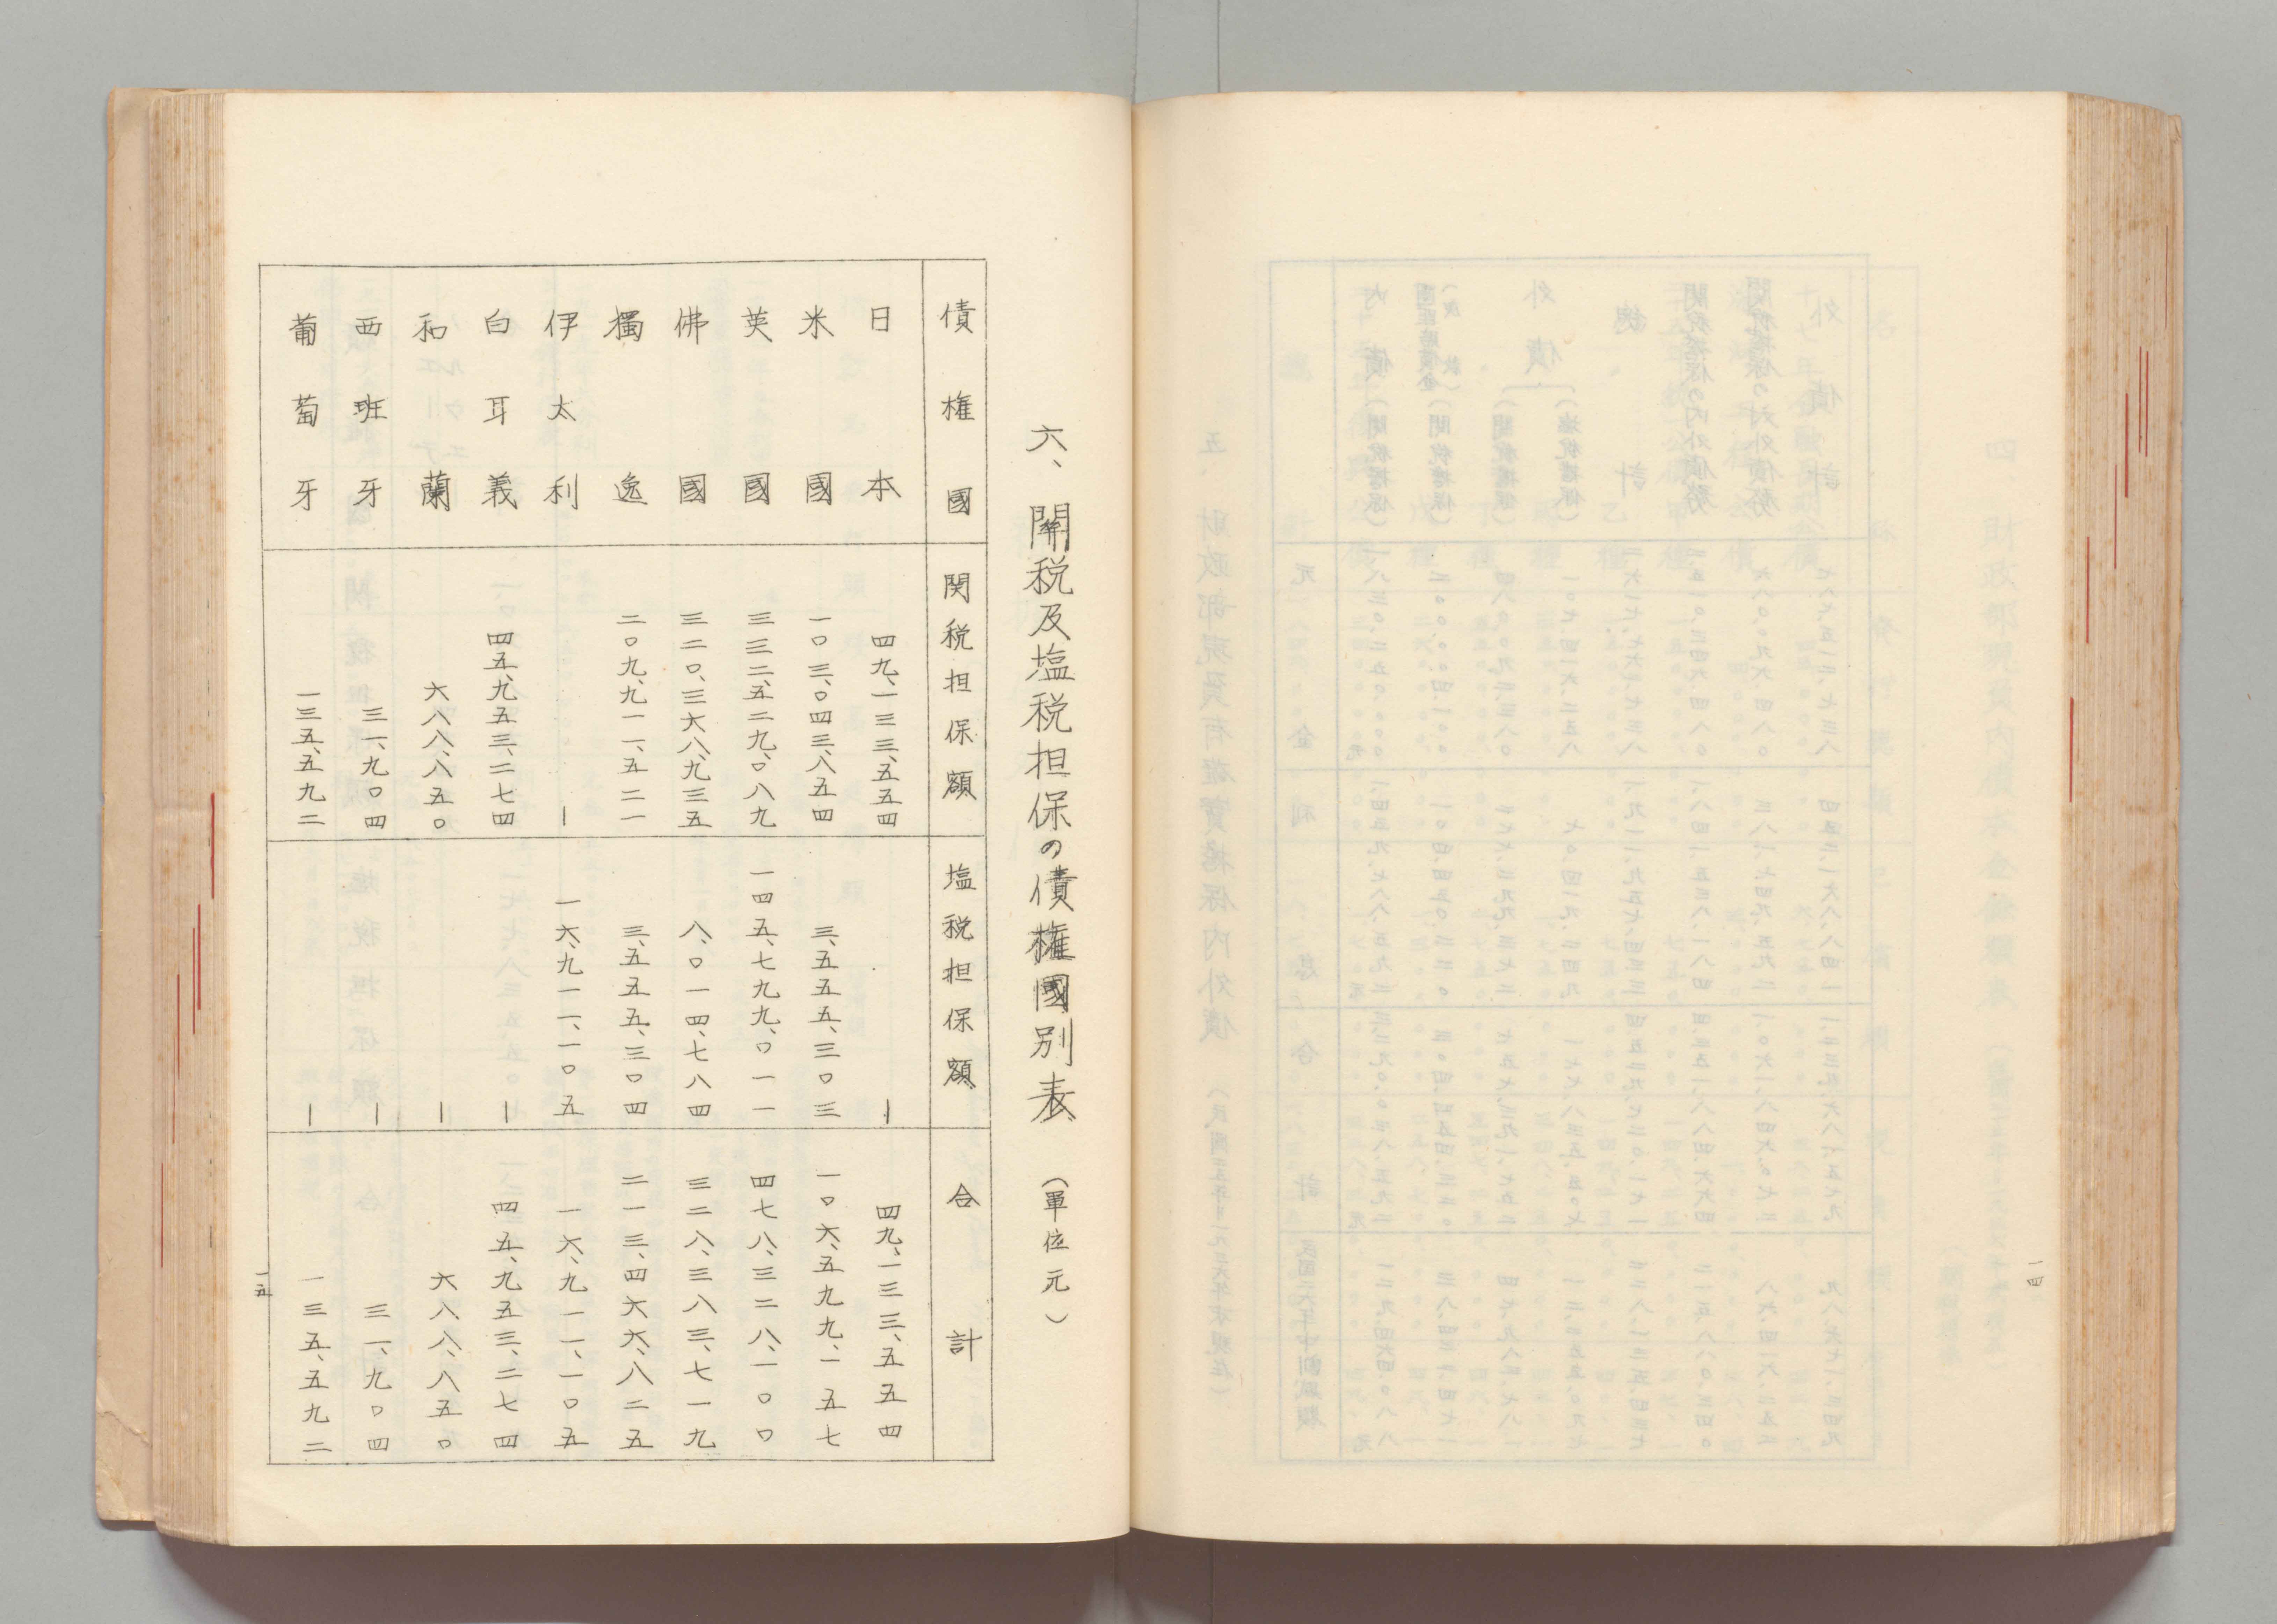 一四
六、関税及塩税担保の債権國別表 (單位元)
債権國 関税担保額 塩税担保額 合計
日本 四九、一三三、五五四 ― 四九、一三三、五五四
米國 一〇三、〇四三、八五四 三、五五五、三〇三 一〇六、五九九、一五七
英國 三三二、五二九、〇八九 一四五、七九九、〇一一 四七八、三二八、一〇〇
佛國 三二〇、三六八、九三五 八、〇一四、七八四 三二八、三八三、七一九
獨逸 二〇九、九一一、五二一 三、五五五、三〇四 二一三、四六六、八二五
伊太利 ― 一六、九一一、一〇五 一六、九一一、一〇五
白耳義 四五、九五三、二七四 ― 四五、九五三、二七四
和蘭 六八八、八五〇 ― 六八八、八五〇
西班牙 三一、九〇四 ― 三一、九〇四
葡萄牙 一三五、五九二 ― 一三五、五九二
一五